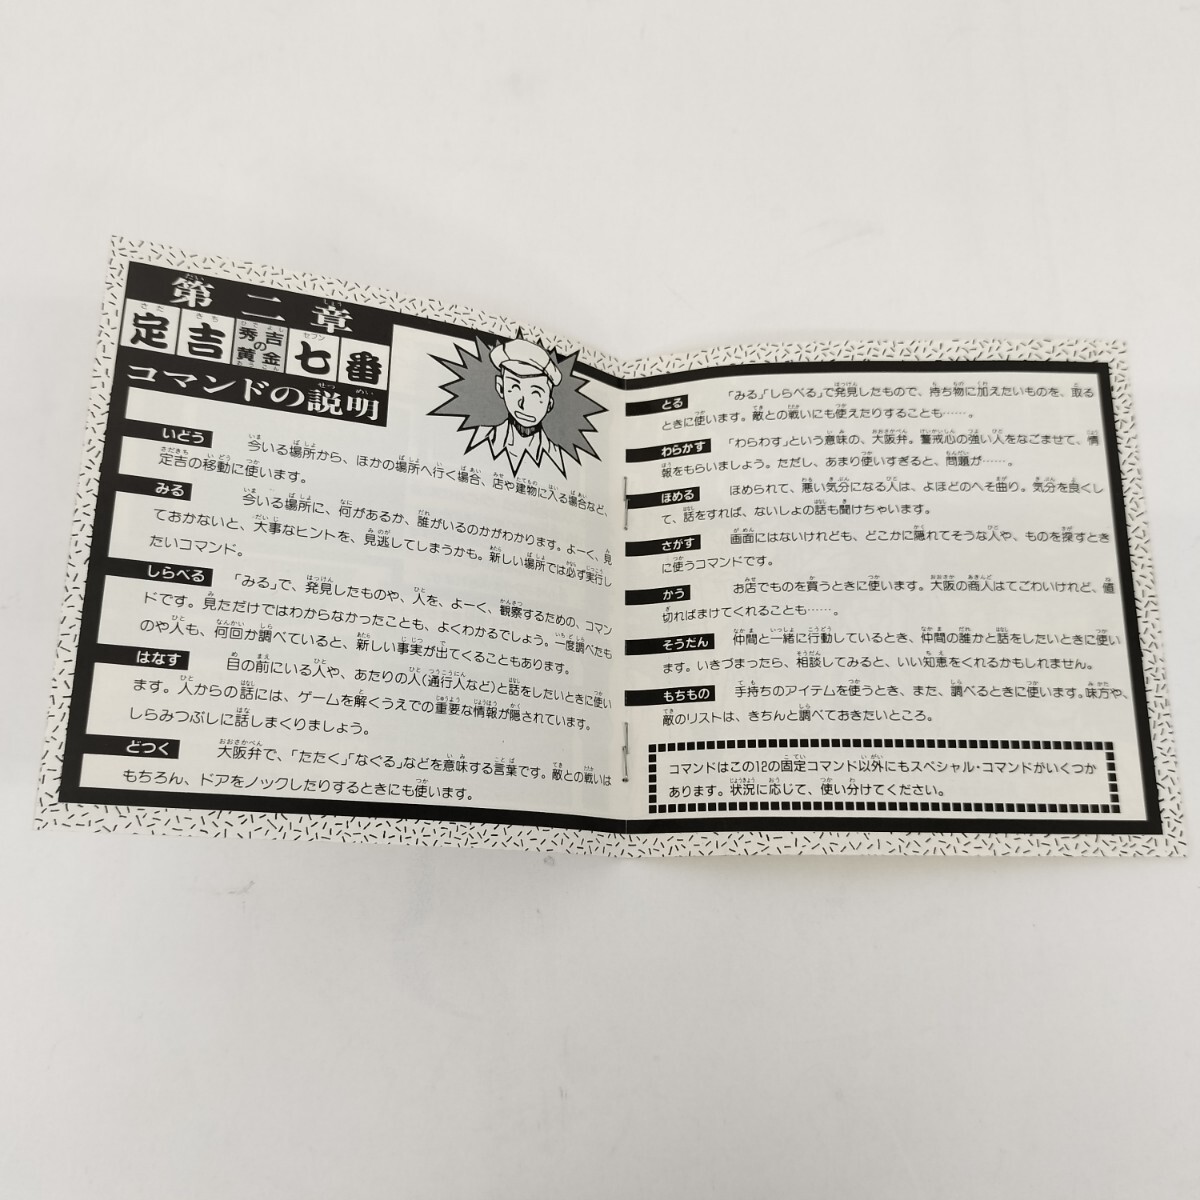 第二章
定吉七番
秀吉の黄金
コマンドの説明
いどう 今いる場所から、ほかの場所へ行く場合、店や建物に入る場合など、
定吉の移動に使います。
みる 今いる場所に、何があるか、誰がいるのかがわかります。よーく、見
ておかないと、大事なヒントを、見逃してしまうかも。新しい場所では必ず実行し
たいコマンド。
しらべる 「みる」で、発見したものや、人を、よーく、観察するための、コマン
ドです。見ただけではわからなかったことも、よくわかるでしょう。一度調べたも
のや人も、何回か調べていると、新しい事実が出てくることもあります。
はなす 目の前にいる人や、あたりの人(通行人など)と話をしたいときに使い
ます。人からの話には、ゲームを解くうえでの重要な情報が隠されています。
しらみつぶしに話しまくりましょう。
どつく 大阪弁で、「たたく」「なぐる」などを意味する言葉です。敵との戦いは
もちろん、ドアをノックしたりするときにも使います。
とる 「みる」「しらべる」で発見したもので、持ち物に加えたいものを、取る
ときに使います。敵との戦いにも使えたりすることも……。
わらかす 「わらわす」という意味の、大阪弁。警戒心の強い人をなごませて、情
報をもらいましょう。ただし、あまり使いすぎると、問題が……。
ほめる ほめられて、悪い気分になる人は、よほどのへそ曲り。気分を良くし
て、話をすれば、ないしょの話も聞けちゃいます。
さがす 画面にはないけれども、どこかに隠れてそうな人や、ものを探すとき
に使うコマンドです。
かう お店でものを買うときに使います。大阪の商人はてごわいけれど、値
切ればまけてくれることも……。
そうだん 仲間と一緒に行動しているとき、仲間の誰かと話をしたいときに使い
ます。いきづまったら、相談してみると、いい知恵をくれるかもしれません。
もちもの 手持ちのアイテムを使うとき、また、調べるときに使います。味方や、
敵のリストは、きちんと調べておきたいところ。
コマンドはこの12の固定コマンド以外にもスペシャル・コマンドがいくつか
あります。状況に応じて、使い分けてください。